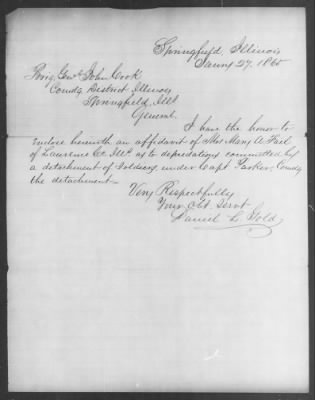 Springfield, Illinois
Jany 27. 1865
Brig. Genl John Cook
Comdg District Illinois
Springfield, Ills
General.
I have the honor to
enclose herewith an affidavit of Mrs Mary A
of Lawrence Co. Ills as to depredations committed by
a detachment of Soldiers, under Capt Parker, Comdg
the detachment—
Very Respectfully
Your Obt. Servt
Daniel L. Gold